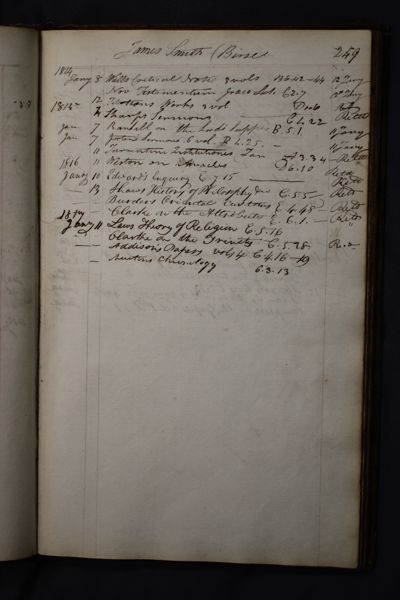 James Smith (Birse) 249
1814
Jany 8 Wells Critical Notes 2 vols B6.42-44 12 Jany
Nov Testamentum Graec Lat. C.2.7 12 Jany
1815 12 Newtons Works 2 vol
Sharps Sermons C.4.22 Retd
Jan 7 Randall on the Lords Supper B.5.1 11 Jany
Jan 7 Jortins Sermons 6 vol B.4.25. 11 Jany
11 Turretini Institutiones A.3.34 Retd
1816 11 Weston on Miracles 6.10 Retd
Jany 10 Edwards Enquiry C.7.15 Retd
13 History of Philosophy C.5.5 Retd
Burders Oriental Customs C.4.48 Retd
Clarke on the Attributes C.6.1 Retd
1817
Jany 11 Laws Theory of Religion C.5.16 "
Clarke on the Trinity C.5.28 Re
Addison's Papers vols 4 C.4.16-19
Newtons Chronology C.3.13